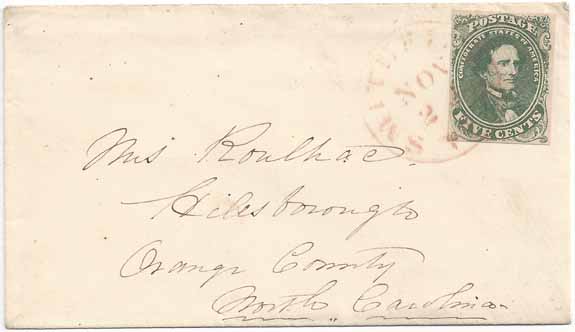 POSTAGE
CONFEDERATE STATES OF AMERICA
FIVE CENTS
NOV
2
Mrs Roulhac.
Hillsborough
Orange County
North Carolina